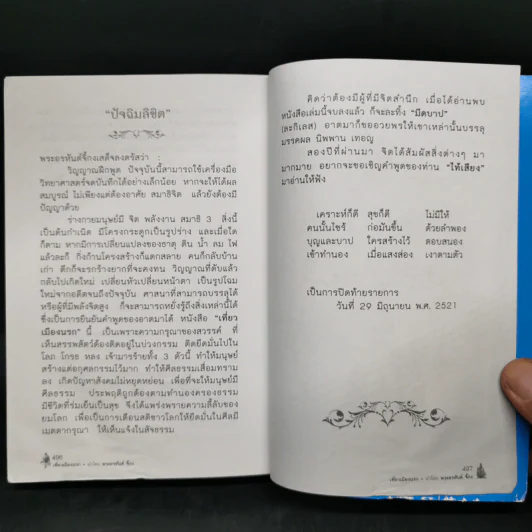 “ปัจฉิมลิขิต”
พระอรหันต์จี้กงเสด็จลงตรัสว่า :
วิญญาณฝึกพูด ปัจจุบันนี้สามารถใช้เครื่องมือ
วิทยาศาสตร์จดบันทึกได้อย่างเล็กน้อย หากจะให้ได้ผล
สมบูรณ์ ไม่เพียงแต่ต้องอาศัย สมาธิจิต แล้วยังต้องมี
ปัญญาด้วย
ร่างกายมนุษย์มี จิต พลังงาน สมาธิ 3 สิ่งนี้
เป็นต้นกำเนิด มีโครงกระดูกเป็นรูปร่าง และเมื่อใด
ก็ตาม หากมีการเปลี่ยนแปลงของธาตุ ดิน น้ำ ลม ไฟ
แล้วละก็ กิ่งก้านโครงสร้างก็แตกสลาย คนก็กลับบ้าน
เก่า ตึกก็จะรกร้างยากที่จะคงทน วิญญาณที่ดับแล้ว
กลับไปเกิดใหม่ เปลี่ยนหัวเปลี่ยนหน้าตา เป็นรูปโฉม
ใหม่จากอดีตจนถึงปัจจุบัน ศาสนาที่สามารถบรรลุได้
หรือผู้ที่มีพลังจิตสูง ก็จะสามารถหยั่งรู้ถึงสิ่งเหล่านี้ได้
ซึ่งเป็นการยืนยันคำพูดของอาตมาได้ หนังสือ “เที่ยว
เมืองนรก” นี้ เป็นเพราะความกรุณาของสวรรค์ ที่
เห็นสรรพสัตว์ต้องติดอยู่ในบ่วงกรรม ติดยึดมั่นไปใน
โลภ โกรธ หลง เจ้ามารร้ายทั้ง 3 ตัวนี้ ทำให้มนุษย์
สร้างแต่อกุศลกรรมไว้มาก ทำให้ศีลธรรมเสื่อมทราม
ลง เกิดปัญหาสังคมไม่หยุดหย่อน เพื่อที่จะให้มนุษย์มี
ศีลธรรม ประพฤติถูกต้องตามทำนองครองธรรม
มีชีวิตที่ร่มเย็นเป็นสุข จึงได้แพร่งพรายความลี้ลับของ
ยมโลก เพื่อเป็นการเตือนสติชาวโลกให้ยึดมั่นในศีลมี
เมตตากรุณา ให้เห็นแจ้งในสัจธรรม
496
คิดว่าต้องมีผู้ที่มีจิตสำนึก เมื่อได้อ่านพบ
หนังสือเล่มนี้จบลงแล้ว ก็จะละทิ้ง “มีดบาป”
(ละกิเลส) อาตมาก็ขออวยพรให้เขาเหล่านั้นบรรลุ
มรรคผล นิพพาน เทอญ
สองปีที่ผ่านมา จิตได้สัมผัสสิ่งต่างๆ มา
มากมาย อยากจะขอเชิญคำพูดของท่าน “ไท้เสียง”
มาอ่านให้ฟัง
เคราะห์ก็ดี สุขก็ดี ไม่มีให้
คนนั้นไซร้ ก่อมันขึ้น ด้วยลำพอง
บุญและบาป ใครสร้างไว้ ตอบสนอง
เช้าทำนอง เมื่อแสงส่อง เงาตามตัว
เป็นการปิดท้ายรายการ
วันที่ 29 มิถุนายน พ.ศ. 2521
497